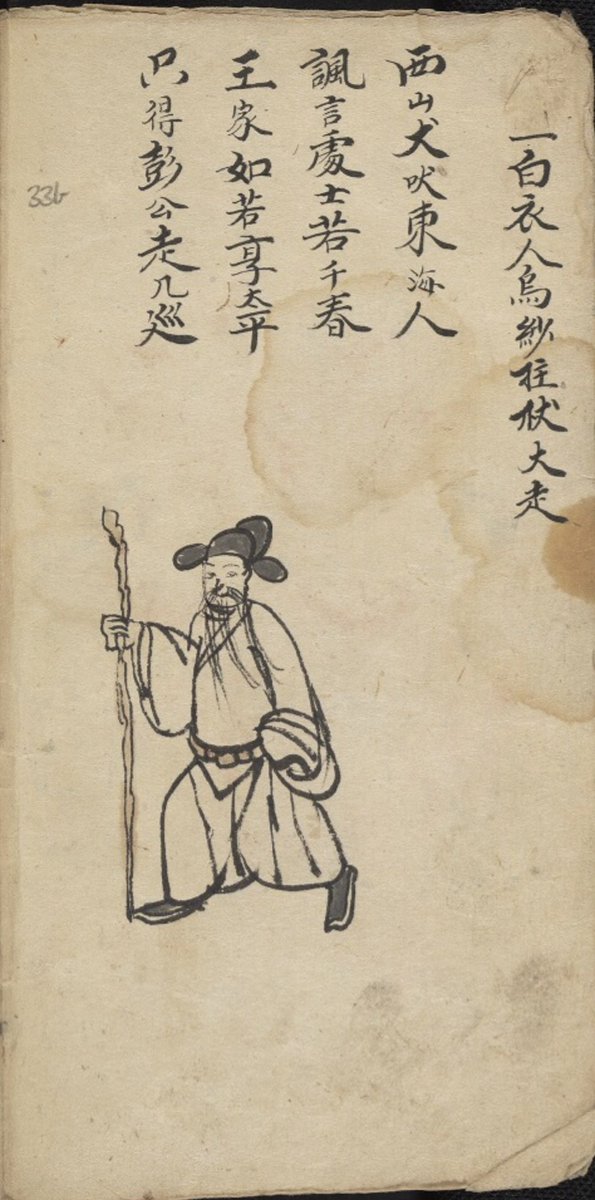 一白衣人烏紗拄伏大走
西山犬吠東海人
諷言處士若千春
王家如若享太平
只得彭公走几廵
33b